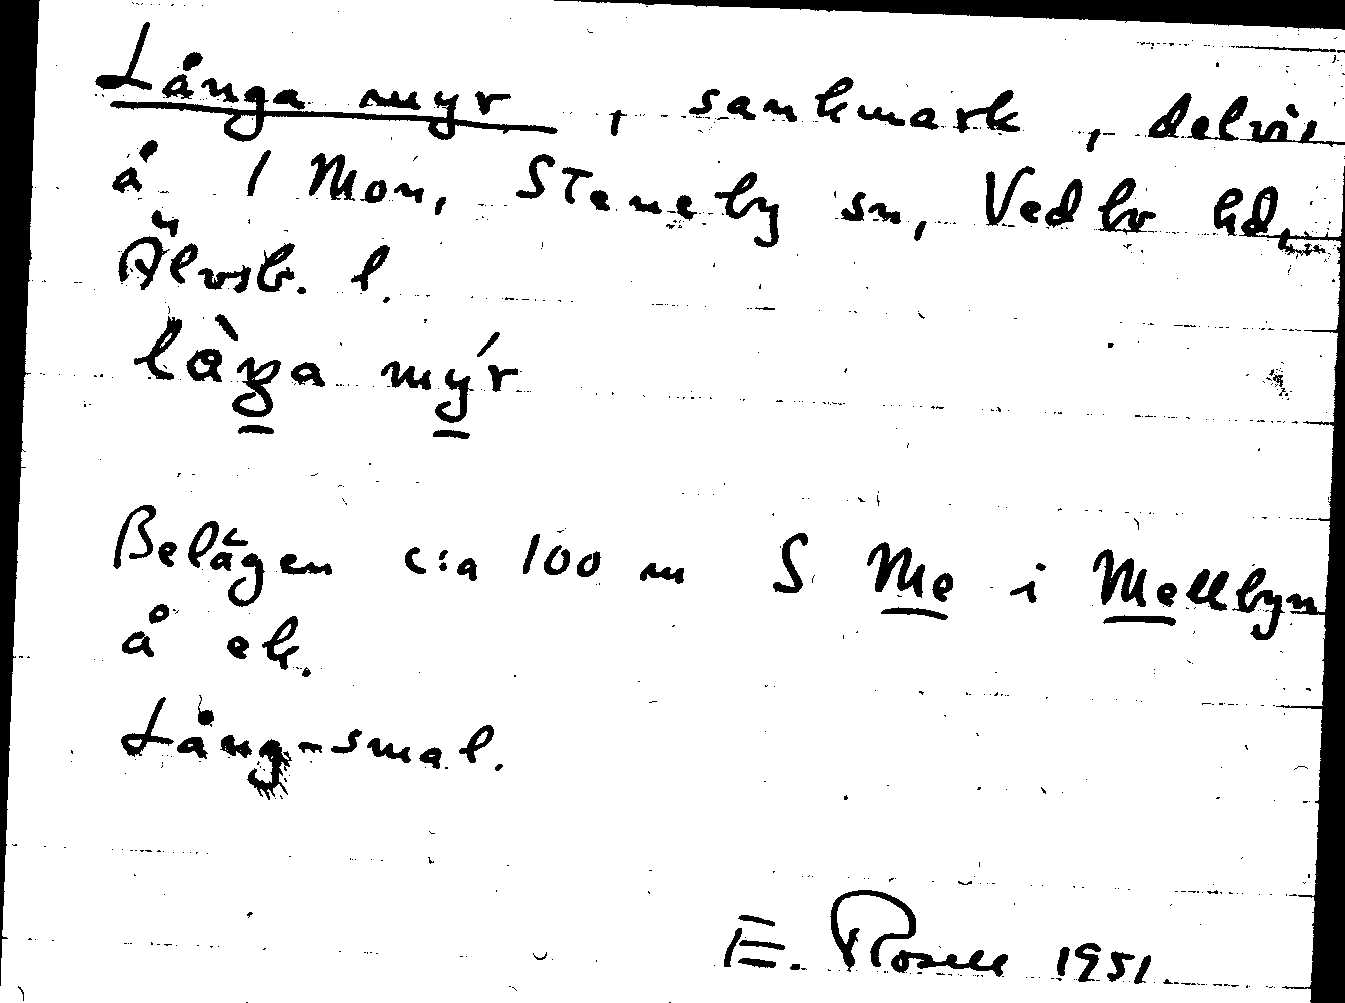 Långa myr, sankmark, delvis
å 1 Mon, Steneby sn, Vedbo hd,
Älvsb. l.
làŋa mýr
Belägen c:a 100 m S Me i Mellbyn
å ek.
Lång-smal.
E. Rosell 1951